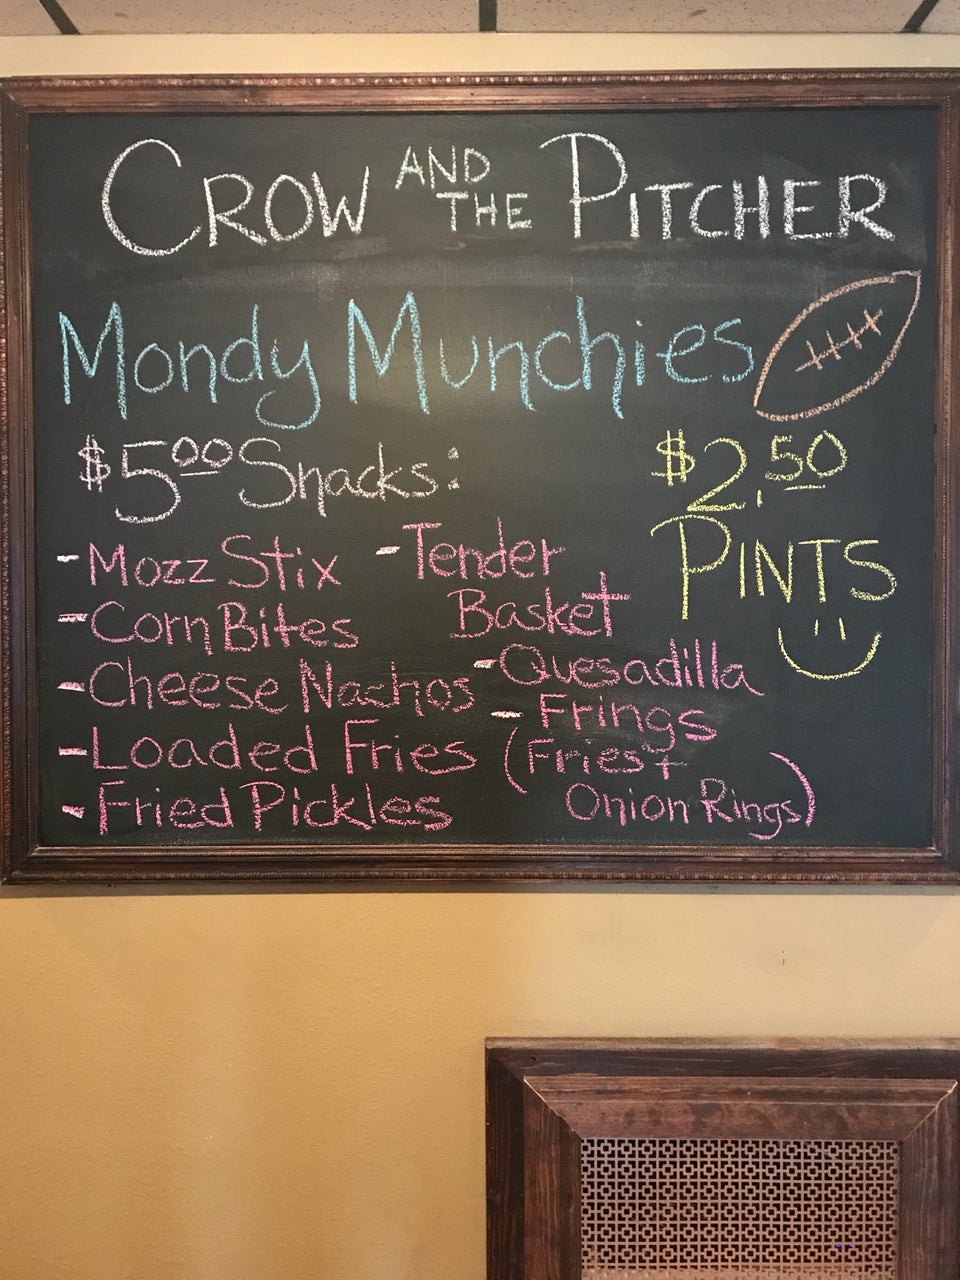 CROW AND THE PITCHER
Mondy Munchies
$5.00 Snacks:
- Mozz Stix
- Corn Bites
- Cheese Nachos
- Loaded Fries
- Fried Pickles
- Tender
Basket
- Quesadilla
- Frings
(Fries +
Onion Rings)
$2.50
PINTS